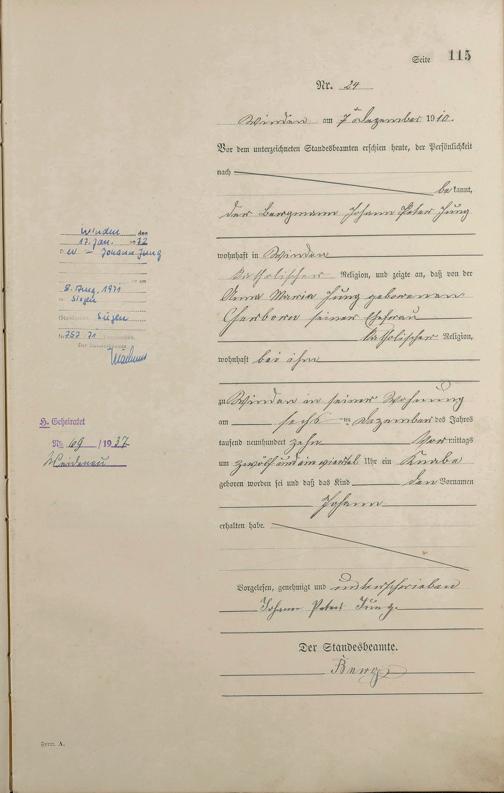 Seite 115
Nr. 24
Winden am 7. Dezember 1910.
Vor dem unterzeichneten Standesbeamten erschien heute, der Persönlichkeit
nach
be kannt,
der Bergmann Johann Peter Jung
wohnhaft in Winden
katholischer Religion, und zeigte an, daß von der
Anna Maria Jung geborenen
seiner Ehefrau
katholischer Religion,
wohnhaft bei ihm
zu Winden in seiner Wohnung
am sechsten Dezember des Jahres
tausend neunhundert zehn Vormittags
um zwölf und ein viertel Uhr ein Knabe
geboren worden sei und daß das Kind den Vornamen
Johann
erhalten habe.
Vorgelesen, genehmigt und unterschrieben
Johann Peter Jung
Der Standesbeamte.
Berg
Winden den
17. Jan. 1972
Johann Jung
8. Aug. 1971
in Siegen
Siegen
757 71
H. Geheiratet
Nr. 69 / 1937
Weidenau
Form. A.